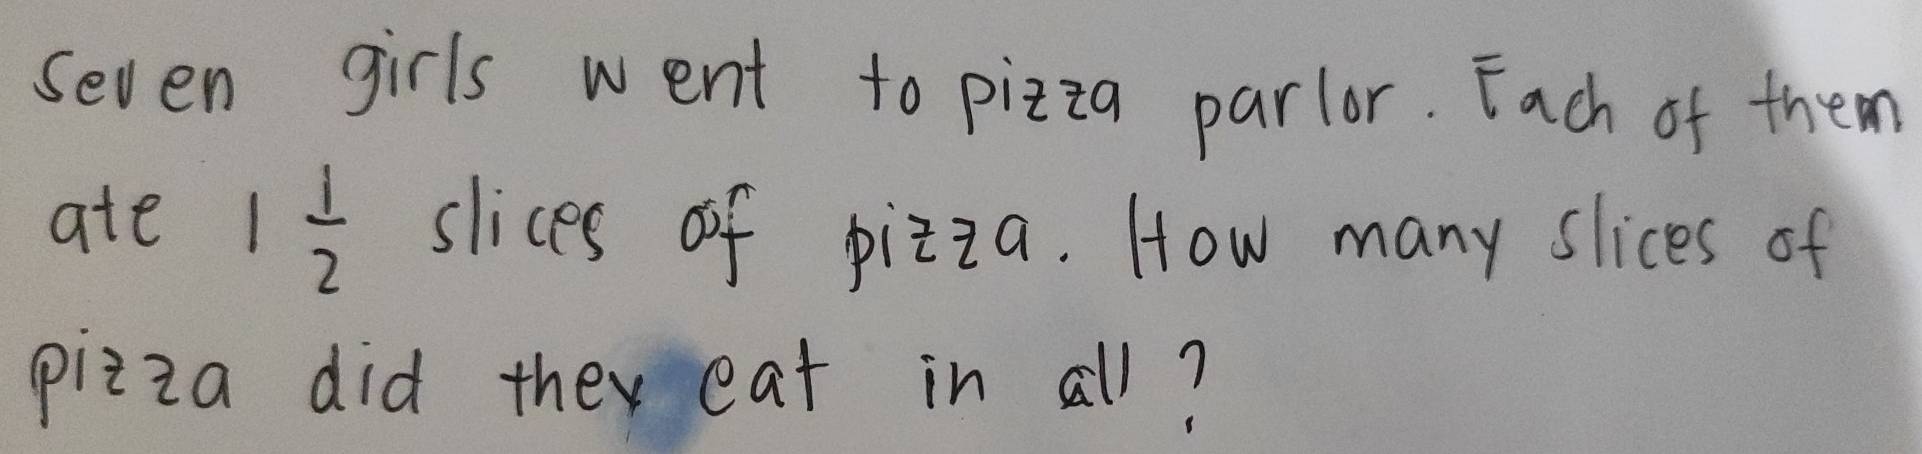 seven girls went to pizza parlor. Each of them
ate 1 1/2 slices of pizza. How many slices of
pizza did they eat in all?